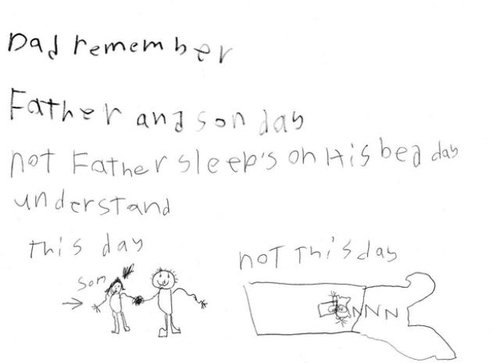 Dad remember
Father and son day
not Father sleep's on His bed day
understand
this day
not this day
son
NNN